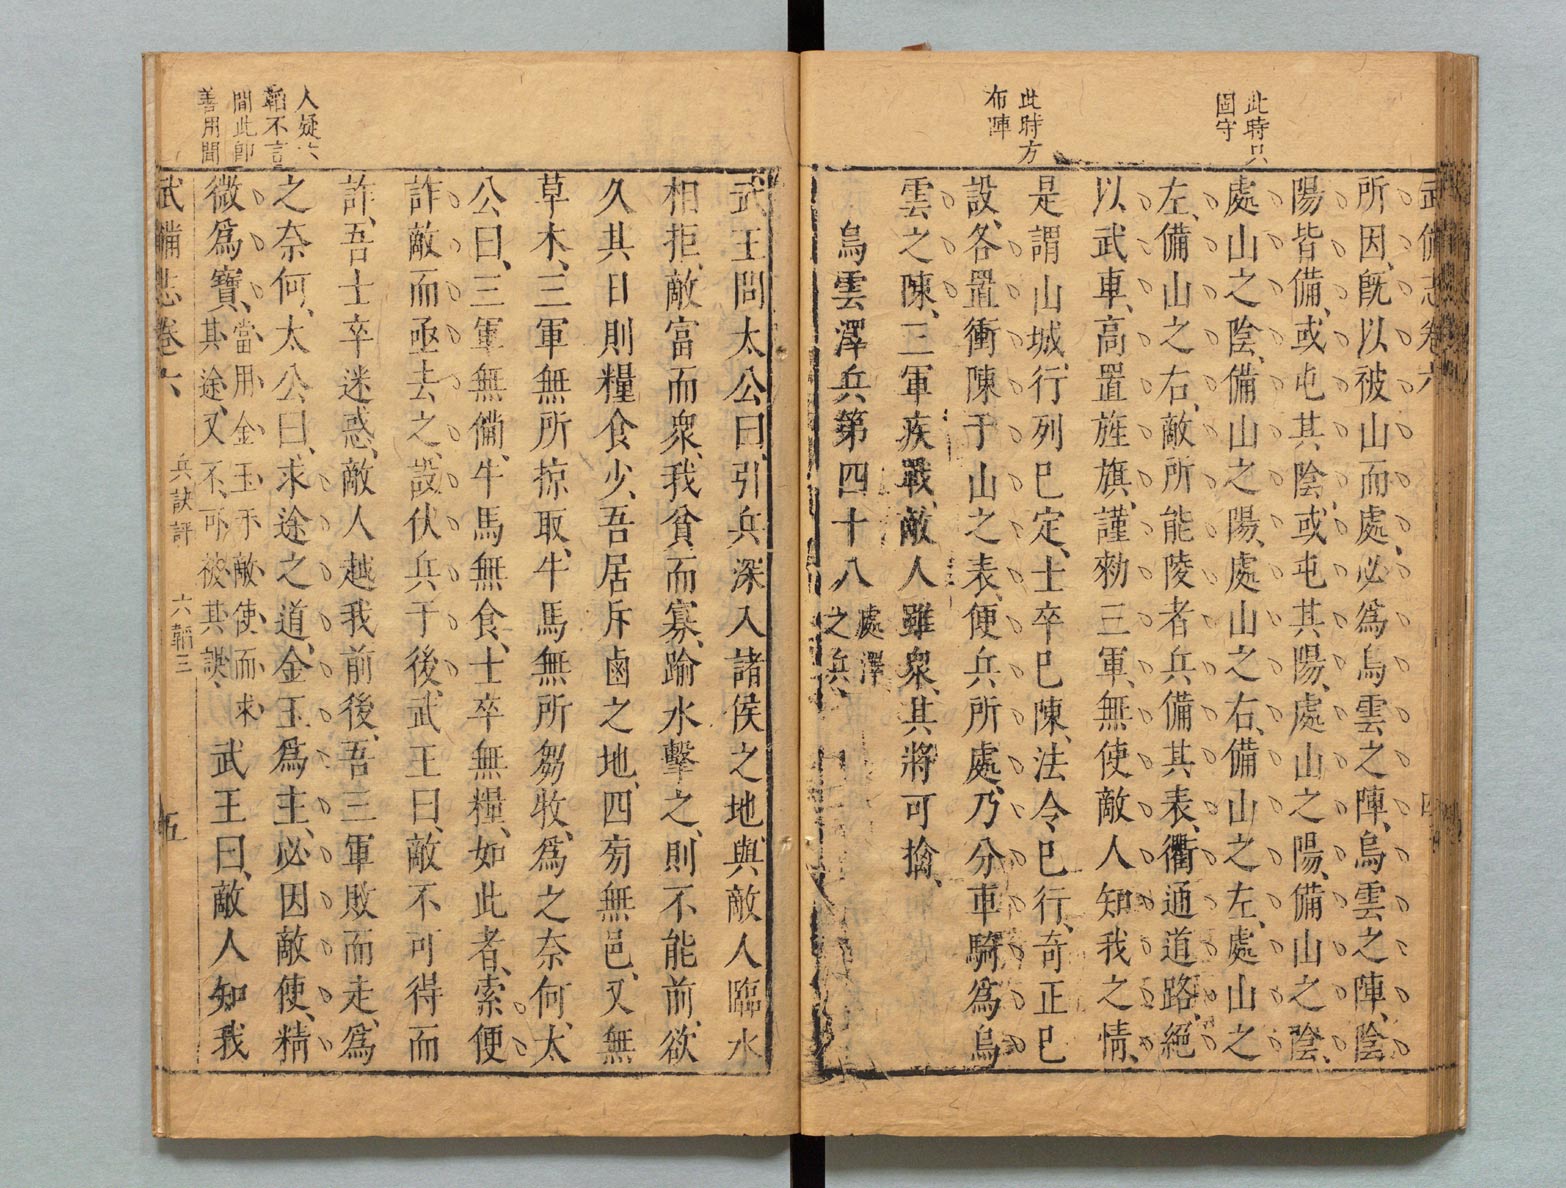 武備志卷六
四
此時只
固守
所因既以被山而處、必爲烏雲之陣、烏雲之陣、陰
陽皆備、或屯其陰、或屯其陽、處山之陽、備山之陰、
處山之陰、備山之陽、處山之右、備山之左、處山之
左、備山之右、敵所能陵者、兵備其表、衢通道路、絕
以武車、高置旌旗、謹勑三軍、無使敵人知我之情、
此時方
布陣
是謂山城、行列已定、士卒已陳、法令已行、奇正已
設、各置衝陳于山之表、便兵所處、乃分車騎爲烏
雲之陳、三軍疾戰、敵人雖衆、其將可擒、
烏雲澤兵第四十八 處澤
之兵、
武王問太公曰、引兵深入諸侯之地、與敵人臨水
相拒、敵富而衆、我貧而寡、踰水擊之、則不能前、欲
久其日則糧食少、吾居斥鹵之地、四旁無邑、又無
草木、三軍無所掠取、牛馬無所芻牧、爲之奈何、太
公曰、三軍無備、牛馬無食、士卒無糧、如此者、索便
詐敵而亟去之、設伏兵于後、武王曰、敵不可得而
詐、吾士卒迷惑、敵人越我前後、吾三軍敗而走、爲
人疑六
韜不言
間此卽
善用間
之奈何、太公曰、求途之道、金玉爲主、必因敵使、精
微爲寶、當用金玉于敵使而求
其途、又不可被其誤、武王曰、敵人知我
武備志卷六
兵訣評 六韜三
五